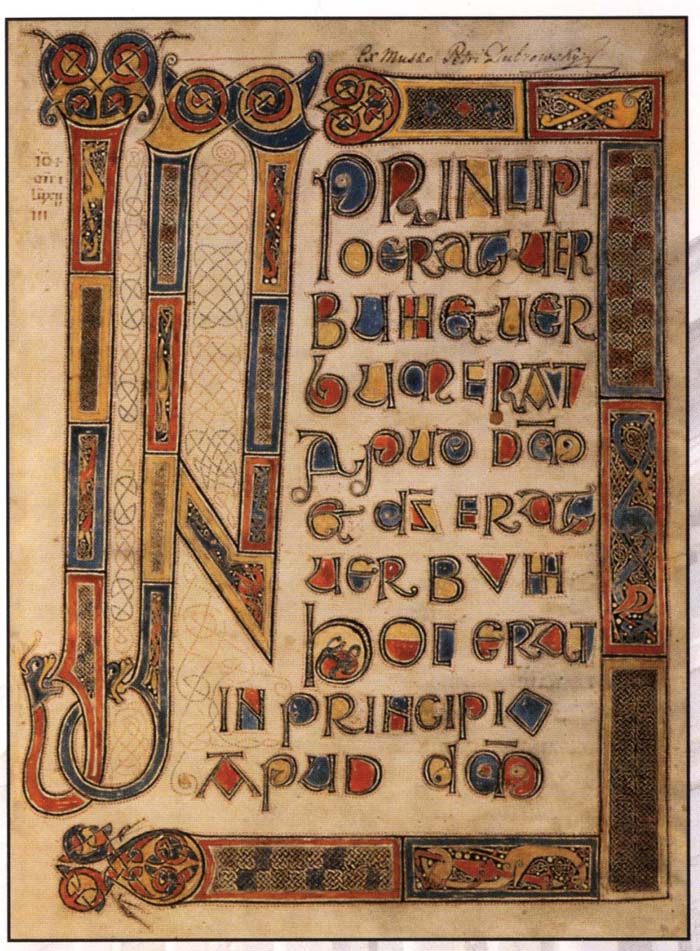 Ex Museo Petri Dubrowsky
IN
PRINCIPI
IO ERAT UER
BUM ET UER
BUM ERAT
APUD DM̄
ET DS̄ ERAT
UERBUM
HOC ERAT
IN PRINCIPIO
APUD DM̄